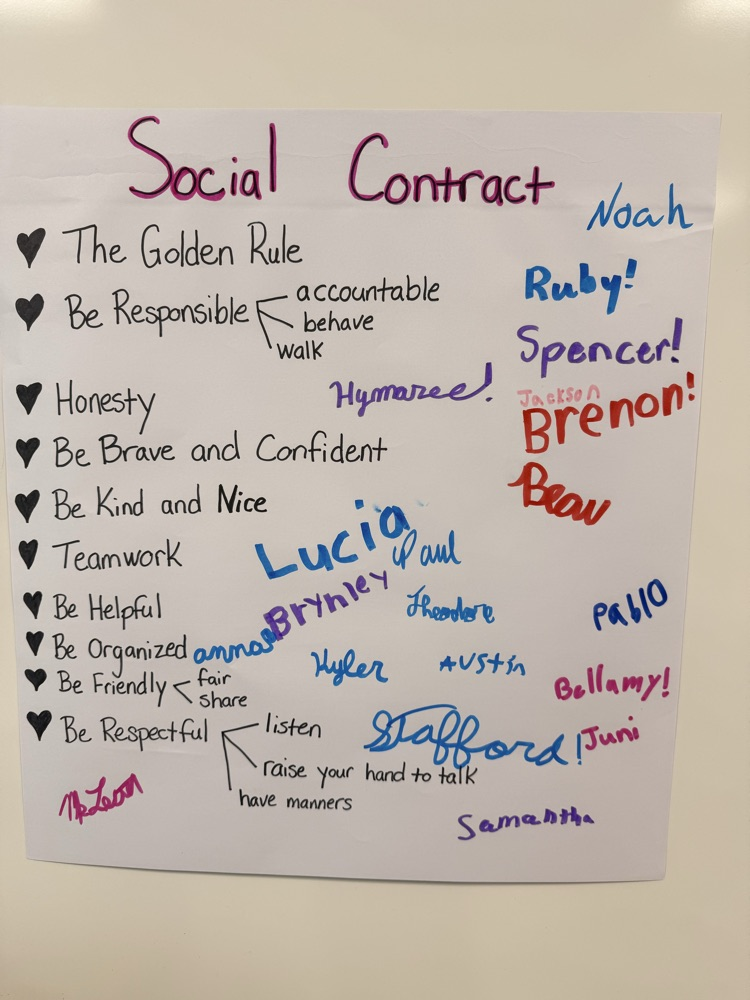 Social Contract
Noah
♥ The Golden Rule
Ruby!
♥ Be Responsible
accountable
behave
walk
Spencer!
♥ Honesty
Hymaree!
Jackson
Brenon!
♥ Be Brave and Confident
Beau
♥ Be Kind and Nice
Lucia
♥ Teamwork
Paul
Brynley
♥ Be Helpful
Theodore
Pablo
♥ Be Organized
anna
Kyler
Austin
♥ Be Friendly
fair
share
Bellamy!
♥ Be Respectful
listen
raise your hand to talk
have manners
Stafford!
Juni
Samantha